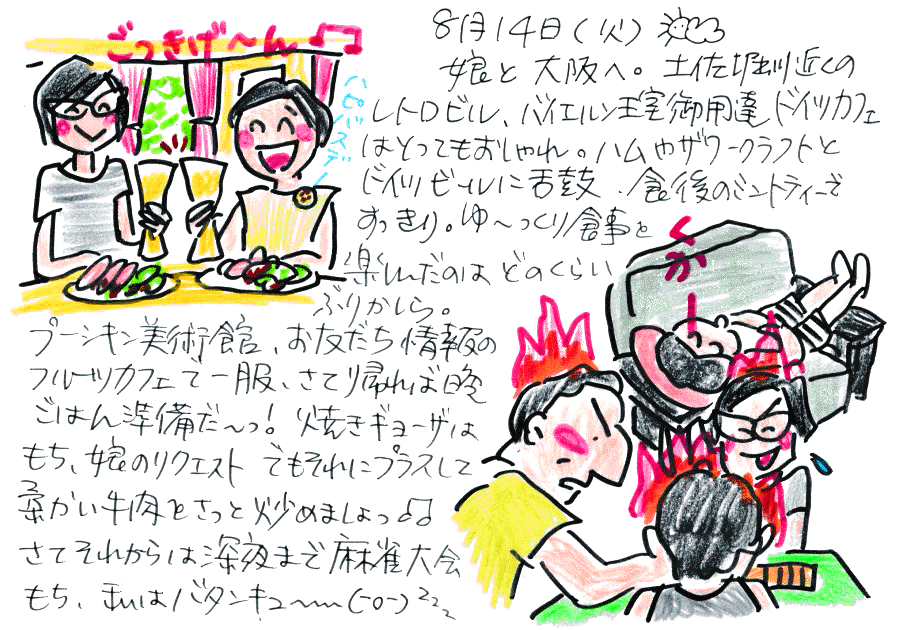 ごっきげ〜ん
8月14日(火)
娘と大阪へ。土佐堀川近くの
レトロビル、バイエルン王室御用達ドイツカフェ
はとってもおしゃれ。ハムやザワークラフトと
ドイツビールに舌鼓、食後のミントティーで
すっきり。ゆ〜っくり食事を
楽しんだのはどのくらい
ぶりかしら。
プーシキン美術館、お友だち情報の
フルーツカフェで一服、さて帰れば晩
ごはん準備だ〜っ!焼きギョーザは
もち、娘のリクエストでもそれにプラスして
柔かい牛肉をさっと炒めましょっ♫
さてそれからは深夜まで麻雀大会
もち、私はバタンキュ〜(-o-)zzz
くかーー